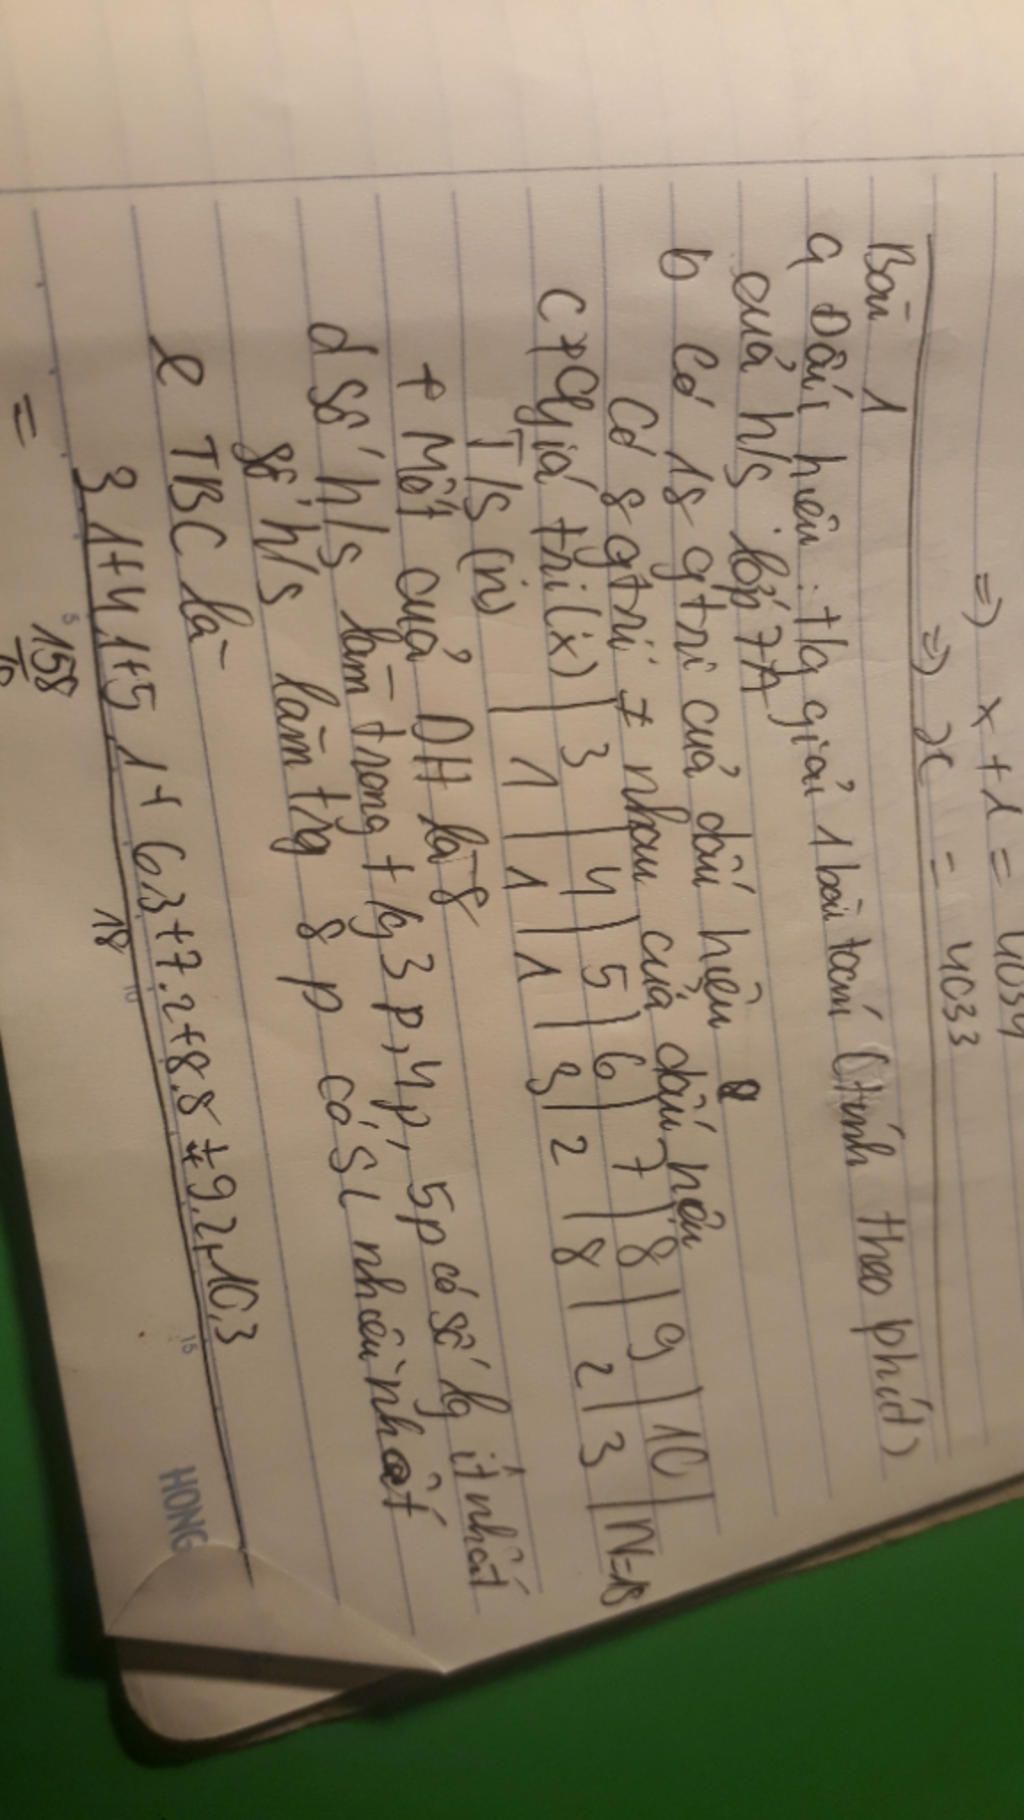 =) x + 1 = 4034
=) x = 4033
Bài 1
a Dấu hiệu: tlg giải 1 bài toán (tính theo phút)
của h/s lớp 7A
b Có 18 gtri của dấu hiệu
Có 8 gtri ≠ nhau của dấu hiệu
c + Giá trị (x) | 3 | 4 | 5 | 6 | 7 | 8 | 9 | 10 |
T/S (n) | 1 | 1 | 1 | 3 | 2 | 8 | 2 | 3 | N=18
+ Mốt của DH là 8
d Số h/s làm trong tlg 3p, 4p, 5p có số lg ít nhất
Số h/s làm tlg 8 p có SL nhiều nhất
e TBC là
3 1+4.1+5 1+ 6.3+7.2+8.8+9.2+10.3
18
= 158
HONG